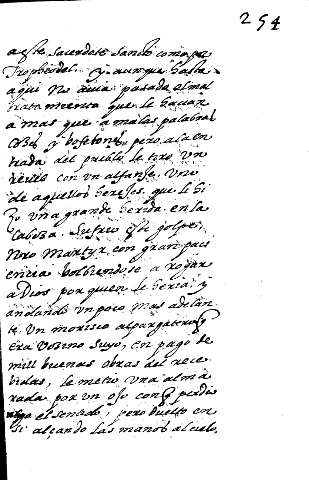 254
a este sacerdote sancto como por
Tropheo del. y aunque hasta
aqui no avia pasado el mal
tratamiento que le hacian
a mas que a malas palabras
y bofetones, pero a la en
trada del pueblo le tiro un
reves con un alfanje. Uno
de aquellos herejes que le hi
zo una grande herida en la
cabeza. Sufrio este golpe,
Nro Martyr con gran paci
encia bolbiendose a rogar
a Dios por quien le heria, y
andando un poco mas adelan
te. Un morisco alpargatero q
era vezino suyo, en pago de
mill buenas obras del rece
bidas, le metio una alma
rada por un ojo con q perdio
el sentido, pero buelto en
si alçando las manos al cielo,